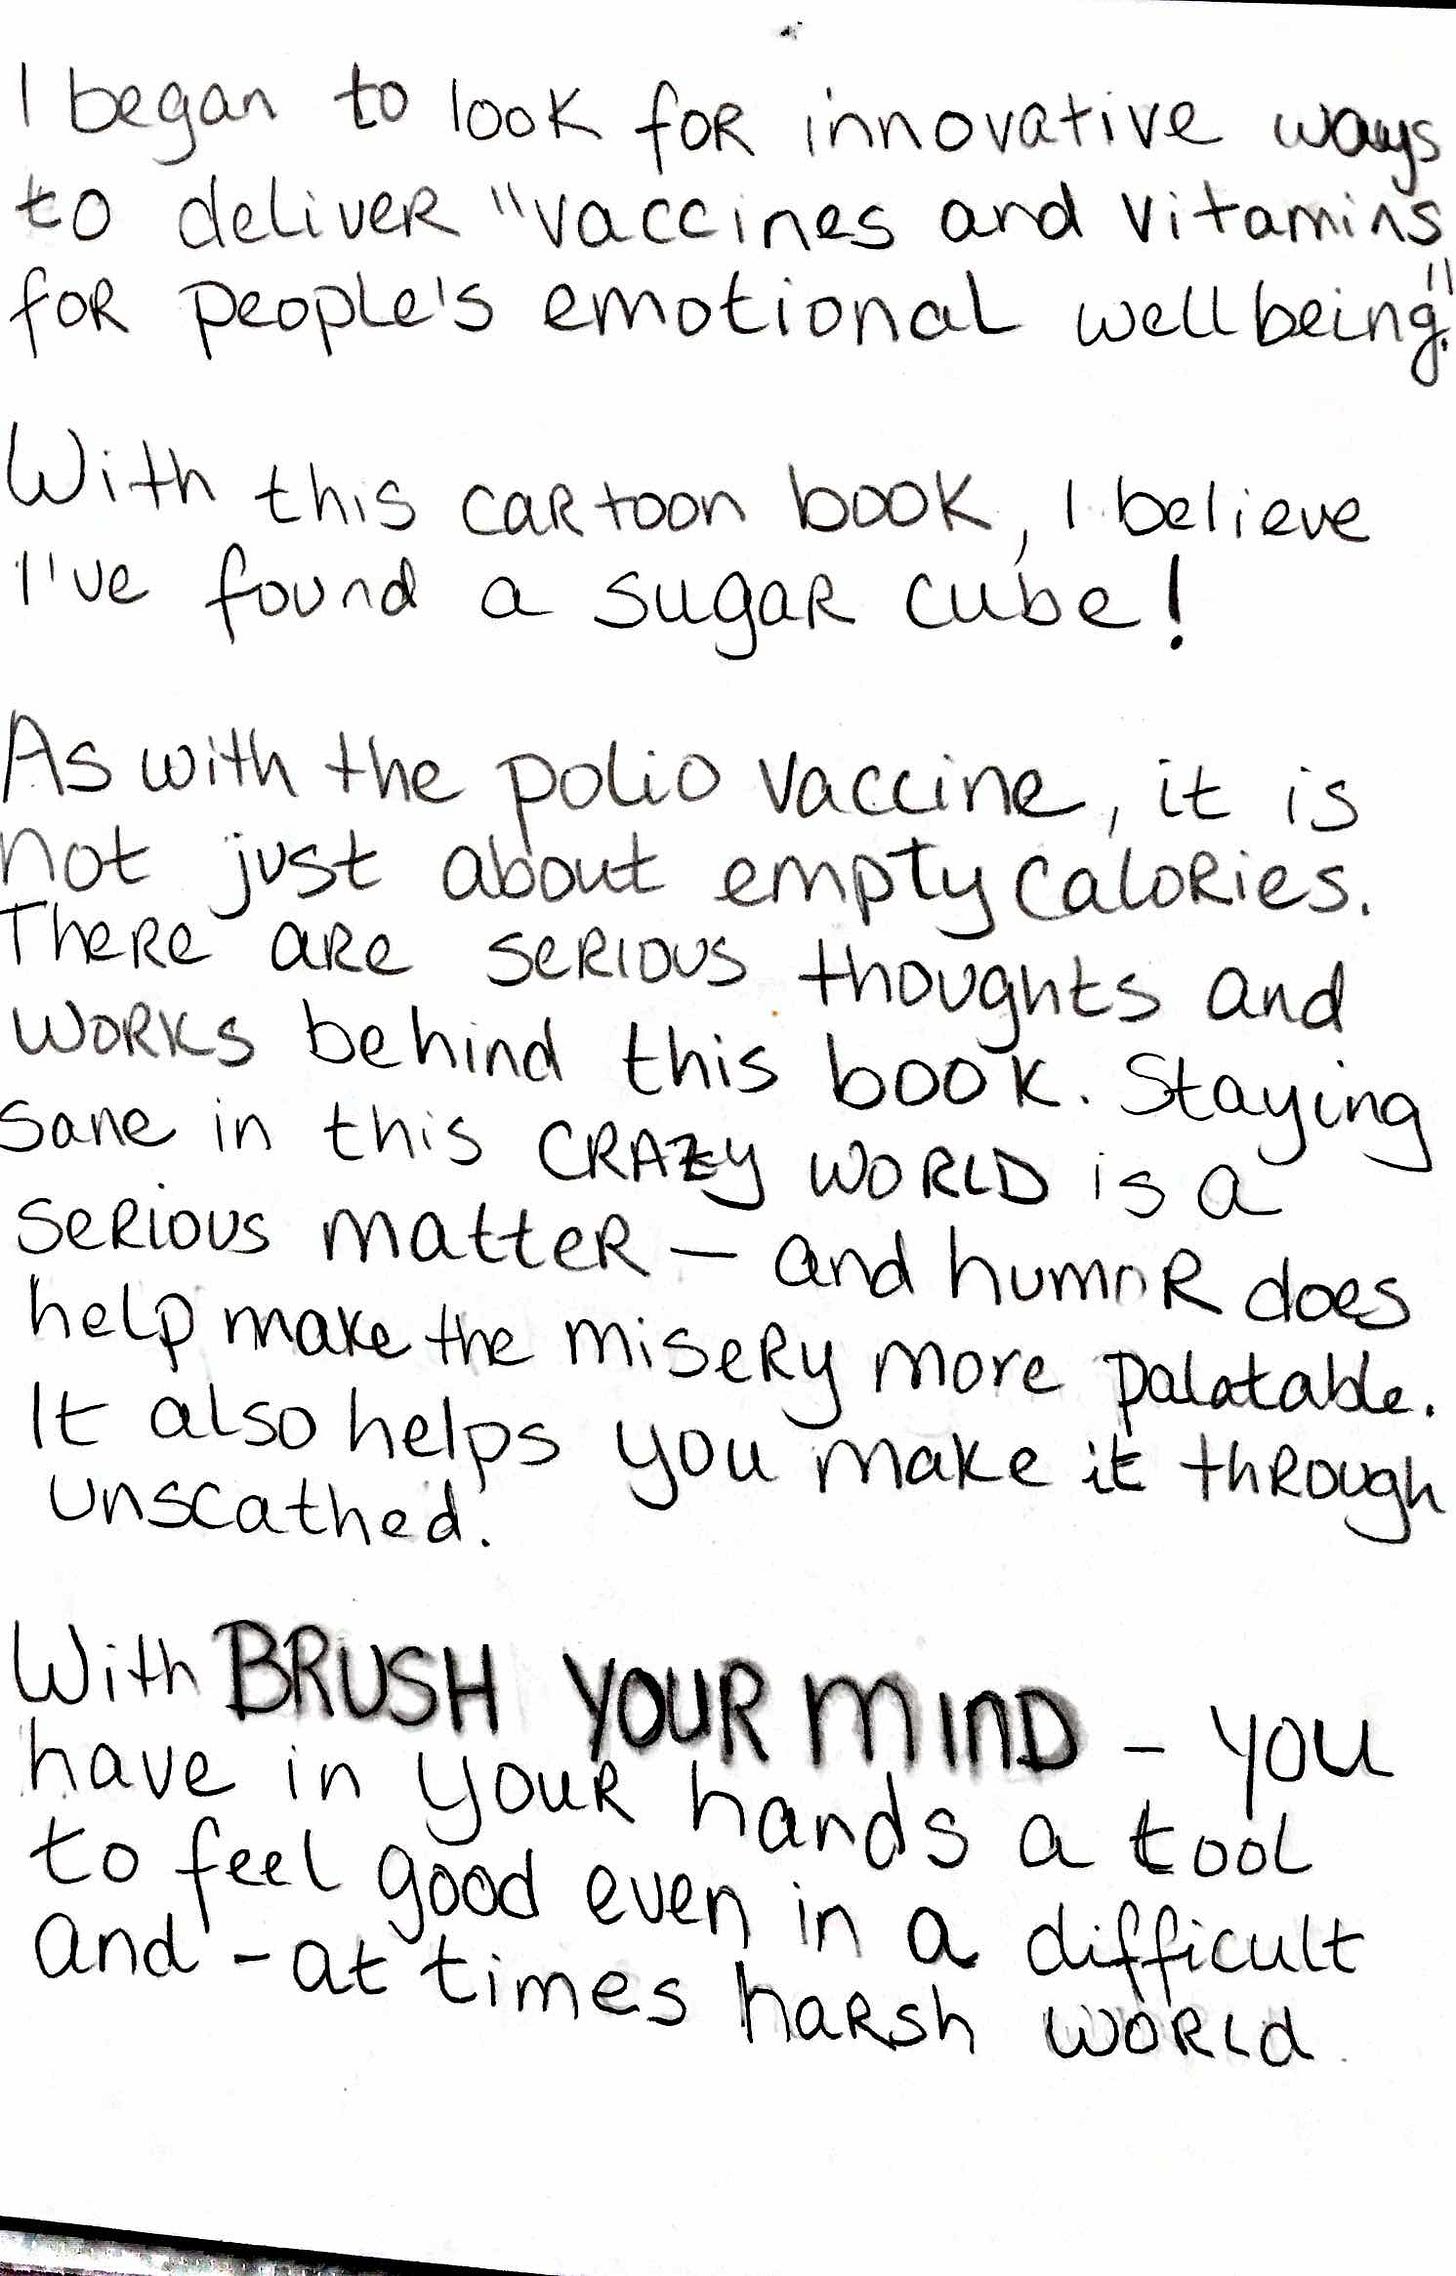 I began to look for innovative ways
to deliver "vaccines and vitamins
for people's emotional wellbeing."
With this cartoon book, I believe
I've found a sugar cube!
As with the polio vaccine, it is
not just about empty calories.
There are serious thoughts and
works behind this book. Staying
sane in this CRAZY WORLD is a
serious matter — and humor does
help make the misery more palatable.
It also helps you make it through
unscathed.
With BRUSH YOUR MIND - you
have in your hands a tool
to feel good even in a difficult
and - at times harsh world.